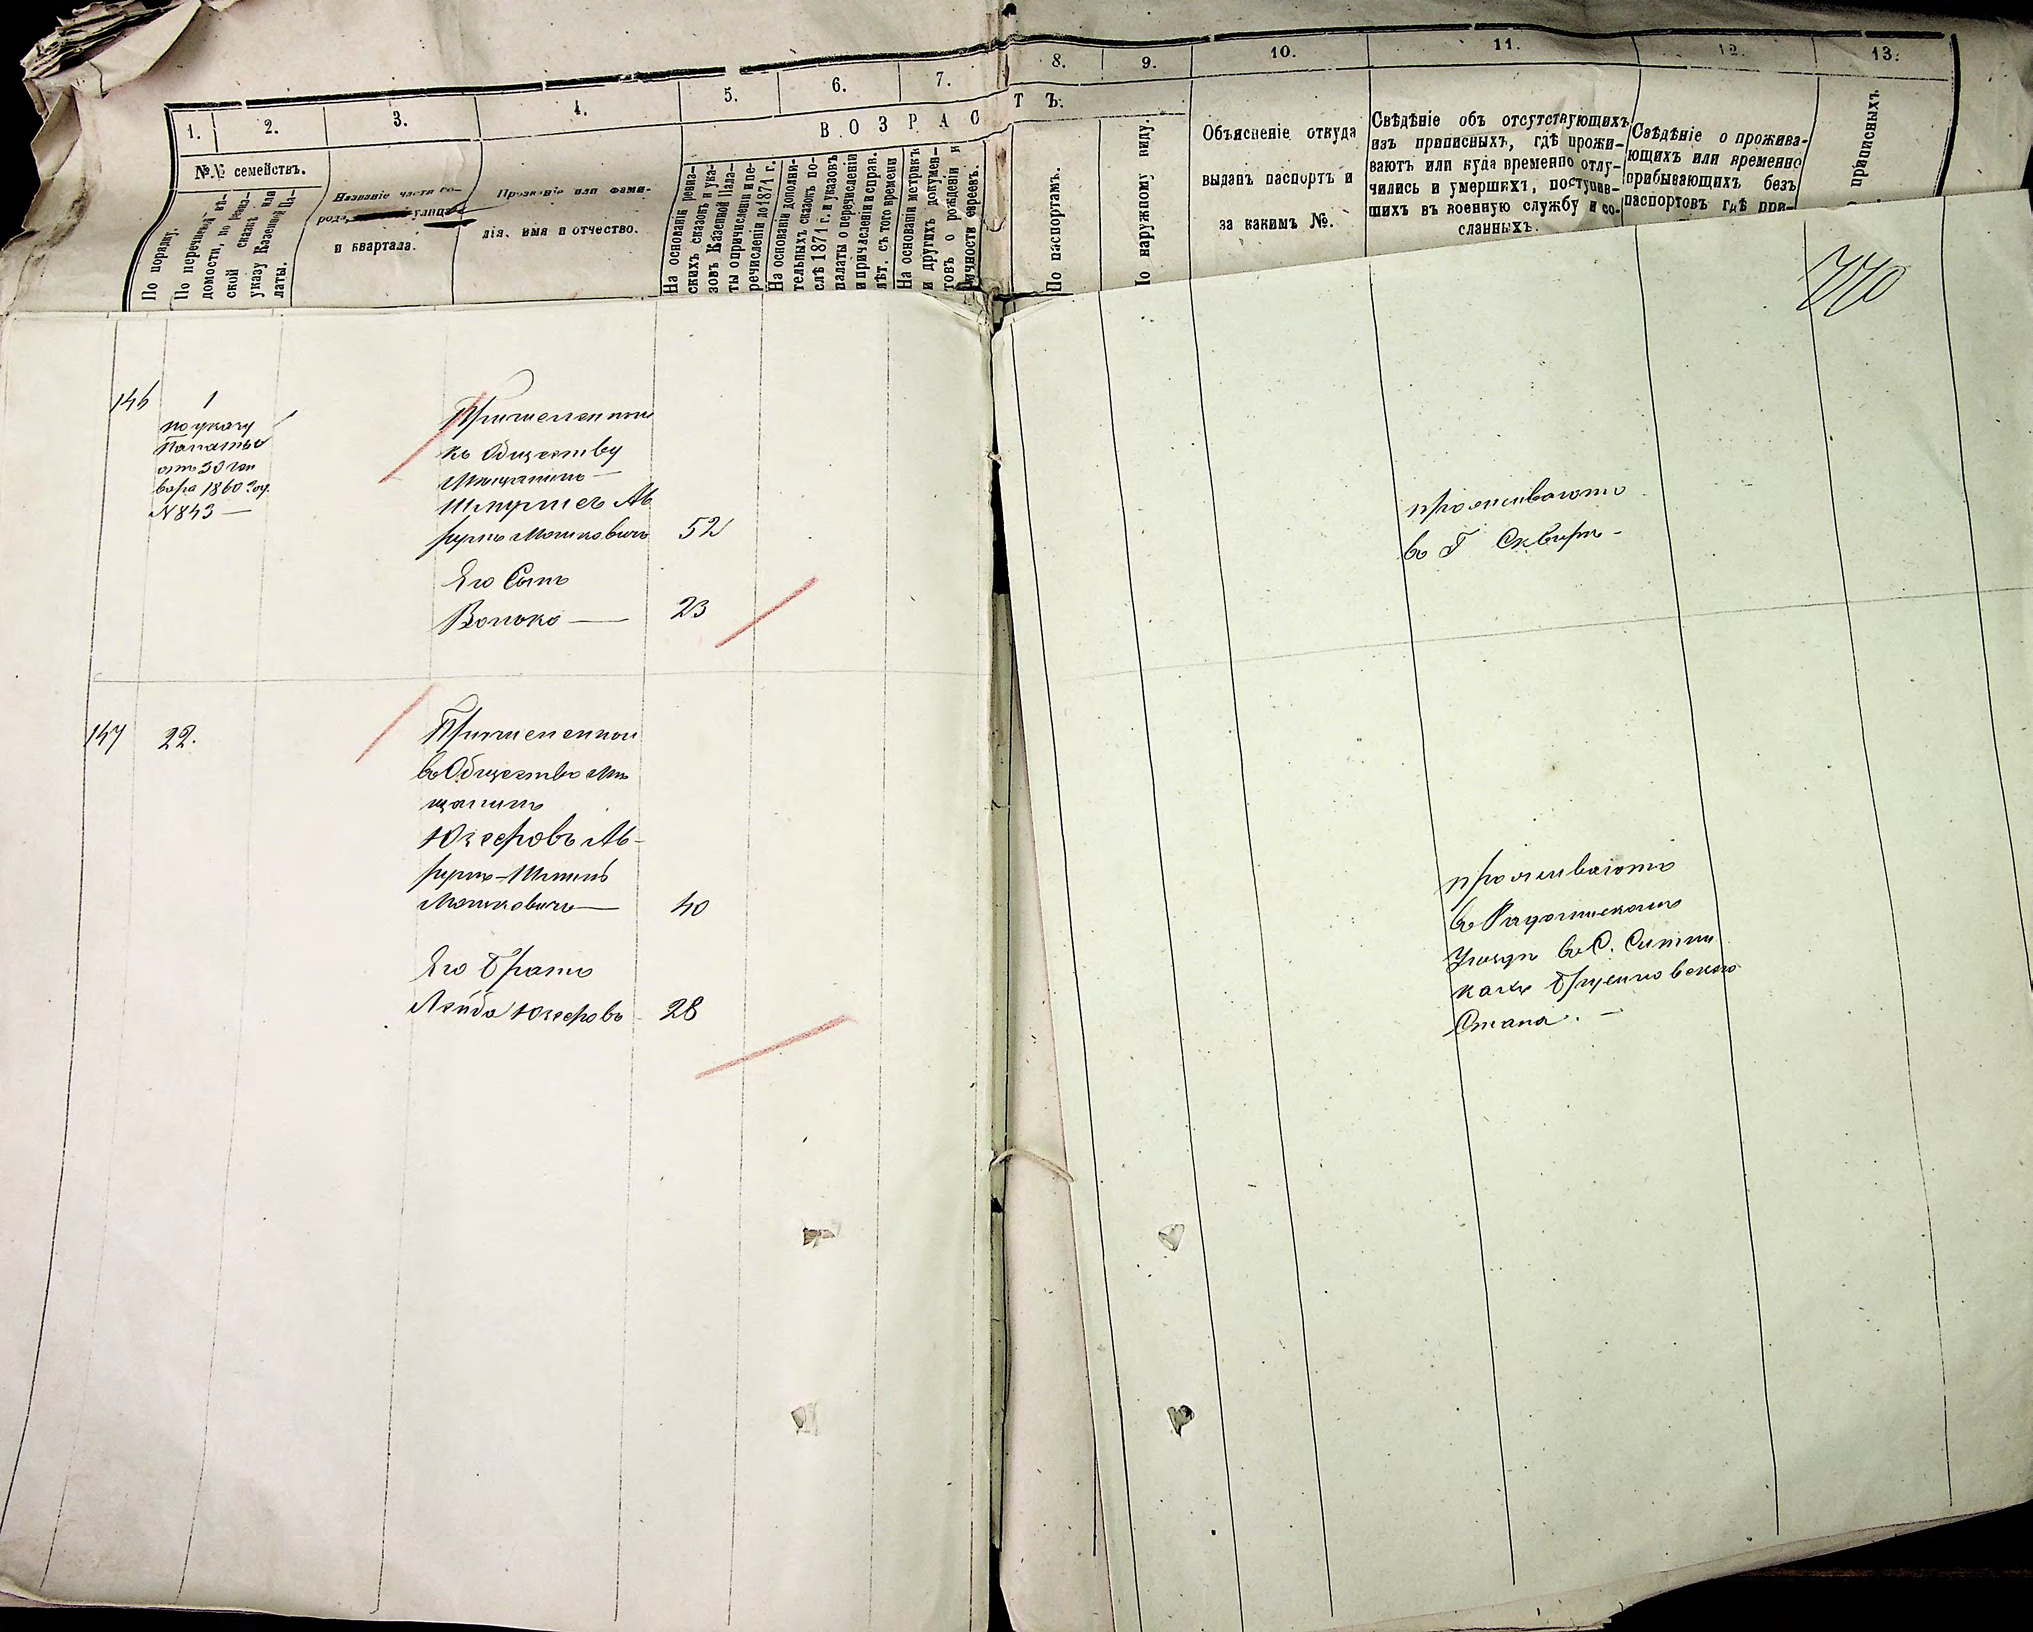 1.
2.
3.
4.
5.
6.
7.
8.
9.
10.
11.
12.
13.
В О З Р А С Т Ъ.
№.№ семействъ.
По порядку.
По перечневой вѣ-
домости, по ревиз-
ской сказкѣ или
указу Казенной Па-
латы.
Названіе части го-
рода, улицы
и квартала.
Прозваніе или фами-
лія, имя и отчество.
На основаніи ревиз-
скихъ сказокъ и ука-
зовъ Казенной Пала-
ты о причисленіи и пе-
речисленіи до 1871 г.
На основаніи дополни-
тельныхъ сказокъ по-
слѣ 1871 г. и указовъ
палаты о перечисленіи
и причисленіи и справ.
лѣт. съ того времени
На основаніи метрикъ
и другихъ докумен-
товъ о рожденіи и
личности евреевъ.
По паспортамъ.
По наружному виду.
Объясненіе откуда
выданъ паспортъ и
за какимъ №.
Свѣдѣніе объ отсутствующихъ
изъ приписныхъ, гдѣ прожи-
ваютъ или куда временно отлу-
чились и умершихъ, поступив-
шихъ въ военную службу и со-
сланныхъ.
Свѣдѣніе о прожива-
ющихъ или временно
прибывающихъ безъ
паспортовъ гдѣ при-
приписныхъ
770
146
1
по указу
Палаты
отъ 30 Ген
варя 1860 год.
N 843 —
Причисленный
къ Обществу
Мѣщанинъ —
Ав
румъ Мошковичъ 52
Его Сынъ
Волько — 23
проживаютъ
въ Г Сквирѣ —
147
22.
Причисленный
въ Общество Мѣ
щанинъ
Юзефовъ Ав-
румъ-
Мошковичъ — 40
Его Братъ
Лейба Юзефовъ 28
проживаютъ
въ Радомысльскомъ
Уѣздѣ въ С. Ситня
кахъ Брусиловскаго
Стана. —